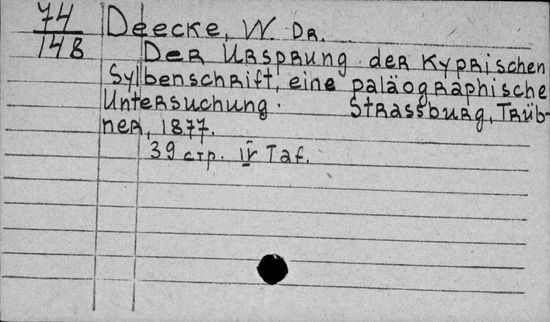 74
148
Deecke, W. Dr.
Der Ursprung der Kyprischen
Sylbenschrift, eine paläographische
Untersuchung. Strassburg, Trüb-
ner, 1877.
39 стр. IV Taf.